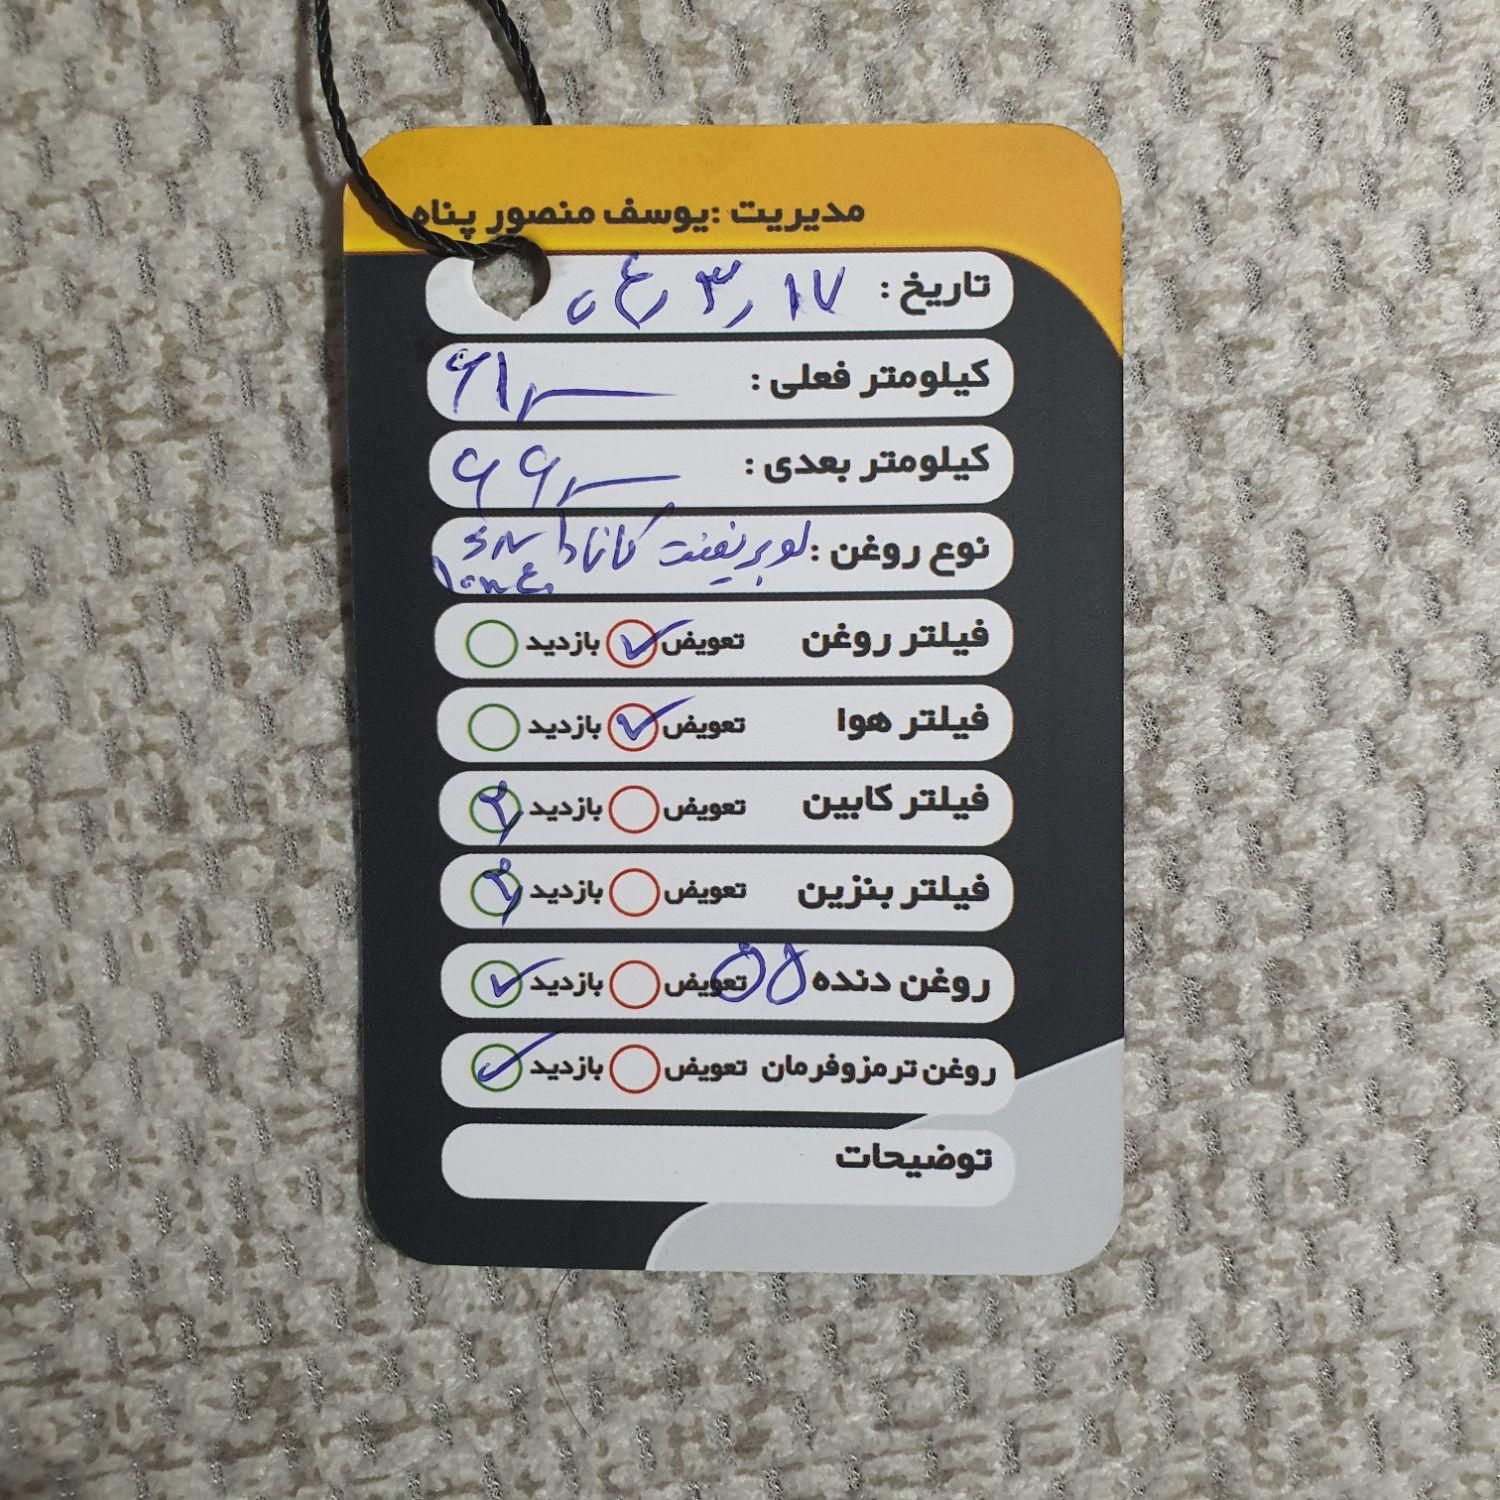 مدیریت :یوسف منصور پناه
تاریخ : ۱۷ ,۳ ,۴۰
کیلومتر فعلی : ۶۱,
کیلومتر بعدی : ۶۶,
نوع روغن : لوبریفنت کانادا
فیلتر روغن تعویض بازدید
فیلتر هوا تعویض بازدید
فیلتر کابین تعویض بازدید
فیلتر بنزین تعویض بازدید
روغن دنده تعویض بازدید
روغن ترمزوفرمان تعویض بازدید
توضیحات